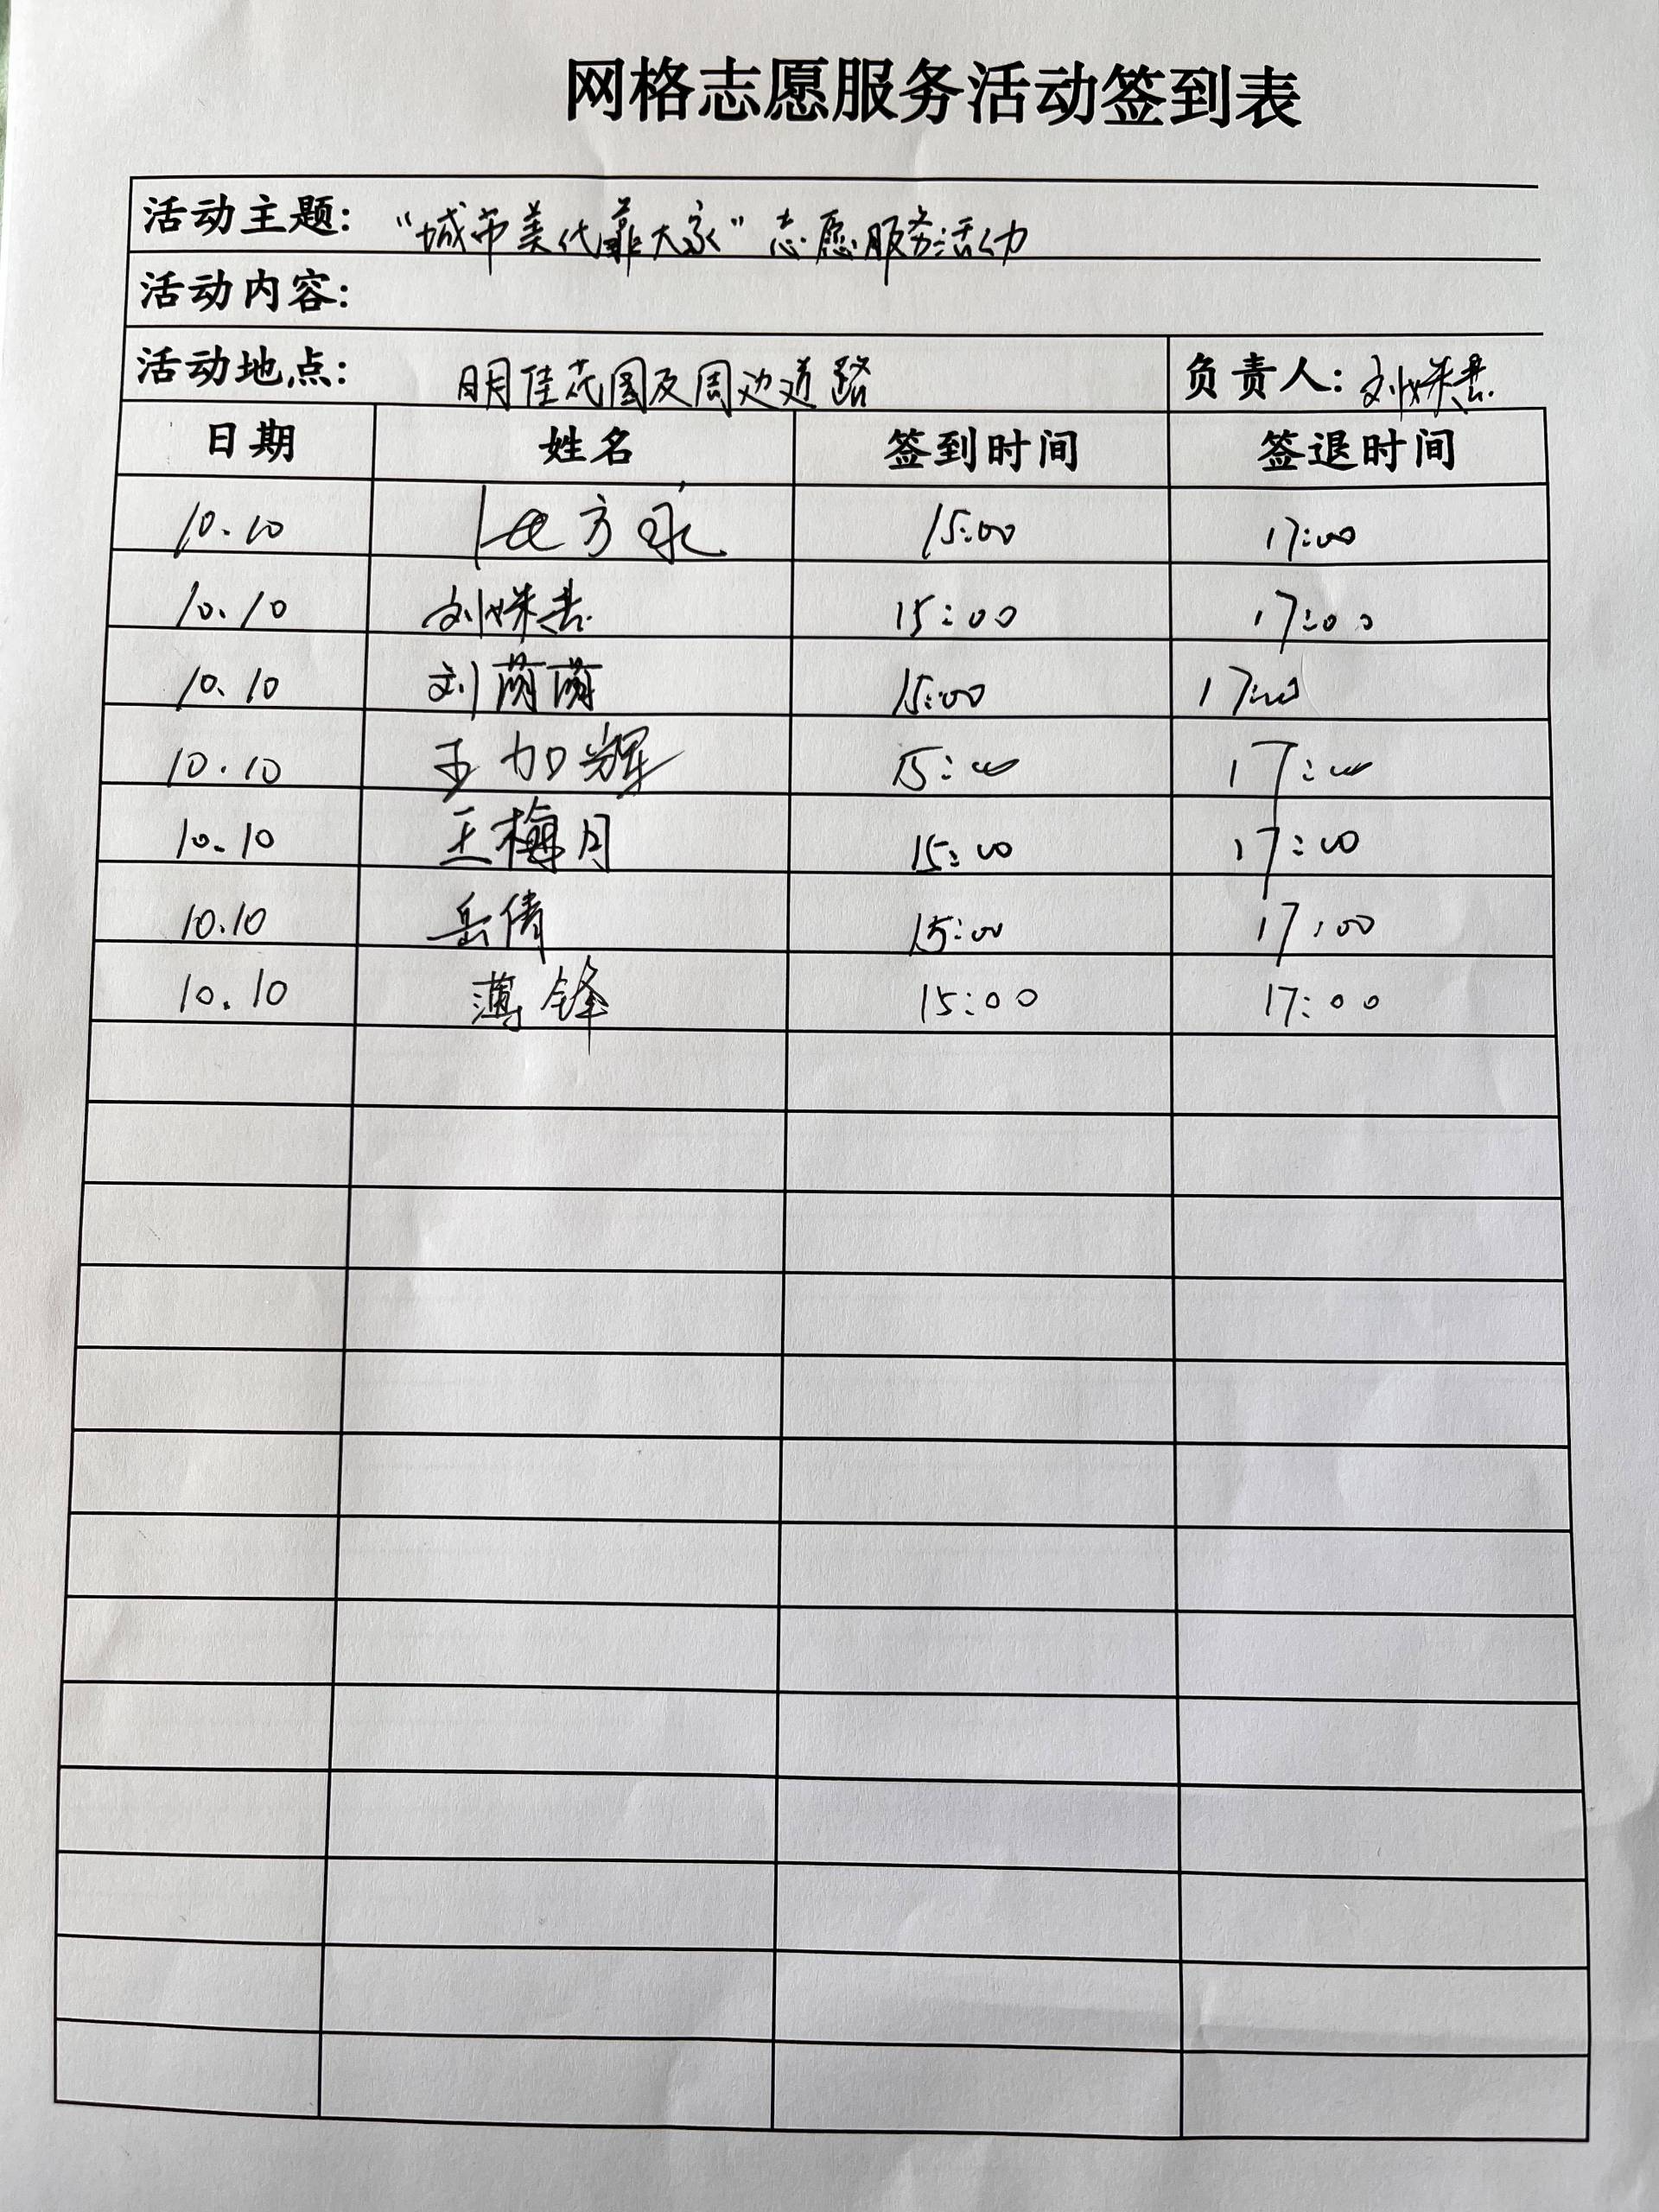 网格志愿服务活动签到表
活动主题: "城市美化靠大家"志愿服务活动
活动内容:
活动地点: 明佳花园及周边道路 负责人: 刘姝君
日期 姓名 签到时间 签退时间
10.10 15:00 17:00
10.10 刘姝君 15:00 17:00
10.10 刘茵茵 15:00 17:00
10.10 王加辉 15:00 17:00
10.10 王梅月 15:00 17:00
10.10 岳倩 15:00 17:00
10.10 薄锋 15:00 17:00